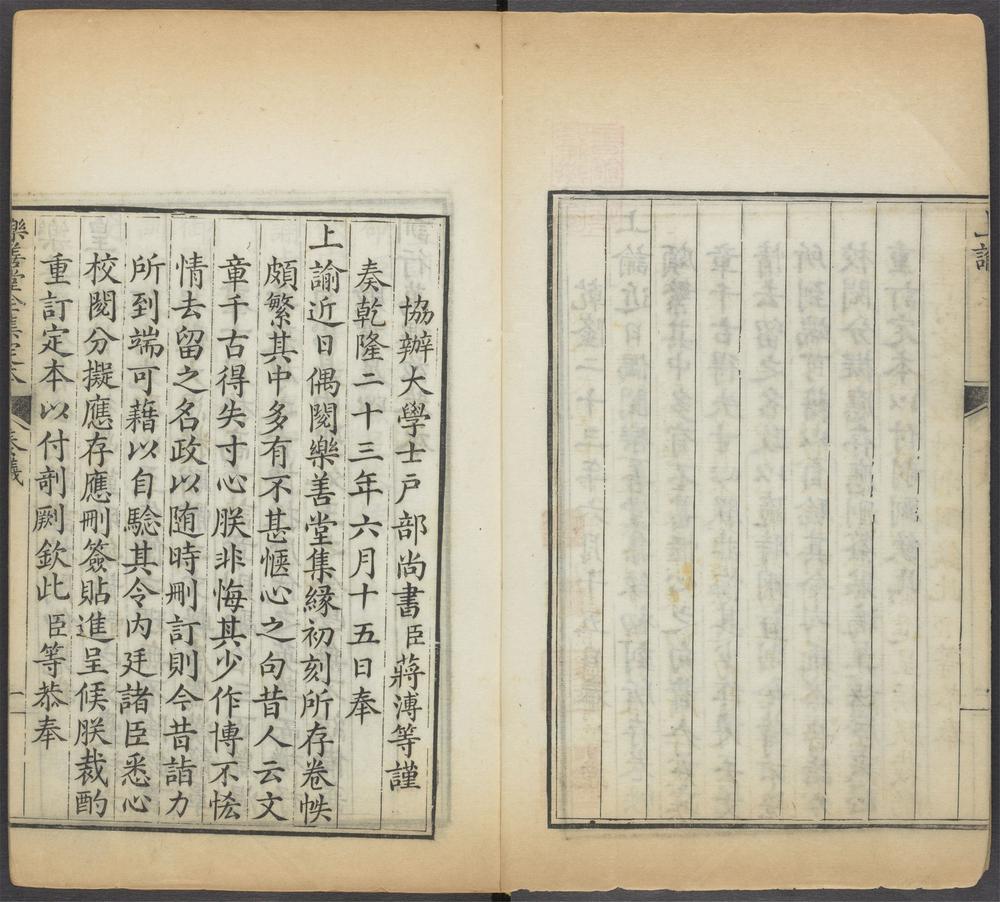 上諭
協辦大學士戶部尚書臣蔣溥等謹
奏乾隆二十三年六月十五日奉
上諭近日偶閱樂善堂集緣初刻所存卷帙
頗繁其中多有不甚愜心之句昔人云文
章千古得失寸心朕非悔其少作博不恡
情去留之名政以随時刪訂則今昔詣力
所到端可藉以自驗其令内廷諸臣悉心
校閱分擬應存應刪簽貼進呈候朕裁酌
重訂定本以付剞劂欽此臣等恭奉
樂善堂全集定本 奏議 一